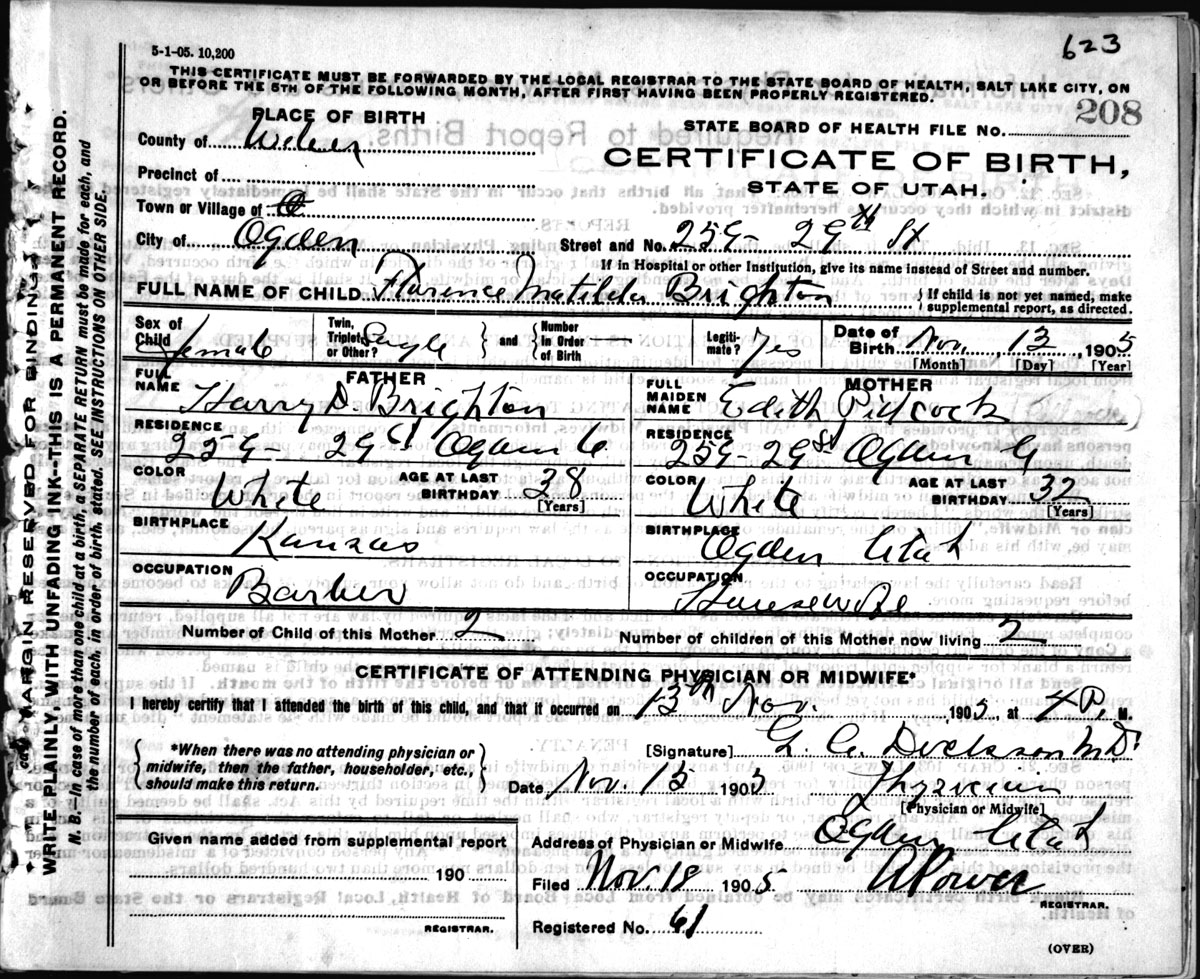 623
5-1-05. 10,200
THIS CERTIFICATE MUST BE FORWARDED BY THE LOCAL REGISTRAR TO THE STATE BOARD OF HEALTH, SALT LAKE CITY, ON
OR BEFORE THE 5TH OF THE FOLLOWING MONTH, AFTER FIRST HAVING BEEN PROPERLY REGISTERED.
208
PLACE OF BIRTH
STATE BOARD OF HEALTH FILE NO.
County of Weber
CERTIFICATE OF BIRTH,
Precinct of
STATE OF UTAH.
Town or Village of
City of Ogden Street and No. 259- 29th St
If in Hospital or other Institution, give its name instead of Street and number.
FULL NAME OF CHILD Florence Matilda Brighton { If child is not yet named, make supplemental report, as directed.
Sex of Child female Twin, Triplet or Other? Single and Number in Order of Birth Legiti-mate? Yes Date of Birth Nov. 13 1905
[Month] [Day] [Year]
FATHER MOTHER
FULL NAME Harry D. Brighton FULL MAIDEN NAME Edith Pidcock
RESIDENCE 259- 29 St Ogden RESIDENCE 259- 29 St Ogden
COLOR White AGE AT LAST BIRTHDAY 38 [Years] COLOR White AGE AT LAST BIRTHDAY 32 [Years]
BIRTHPLACE Kansas BIRTHPLACE Ogden Utah
OCCUPATION Barber OCCUPATION Housewife
Number of Child of this Mother 2 Number of children of this Mother now living 2
CERTIFICATE OF ATTENDING PHYSICIAN OR MIDWIFE*
I hereby certify that I attended the birth of this child, and that it occurred on 13th Nov. 1905, at 4 P. M.
{ *When there was no attending physician or midwife, then the father, householder, etc., should make this return. }
[Signature] Dickson M.D.
Date Nov. 15 190 Physician
[Physician or Midwife]
Given name added from supplemental report
Address of Physician or Midwife Ogden Utah
190
Filed Nov 18 1905. Power
REGISTRAR.
REGISTRAR. Registered No. 61
(OVER)
MARGIN RESERVED FOR BINDING.
WRITE PLAINLY WITH UNFADING INK--THIS IS A PERMANENT RECORD.
N. B.--In case of more than one child at a birth, a SEPARATE RETURN must be made for each, and
the number of each, in order of birth, stated. SEE INSTRUCTIONS ON OTHER SIDE.